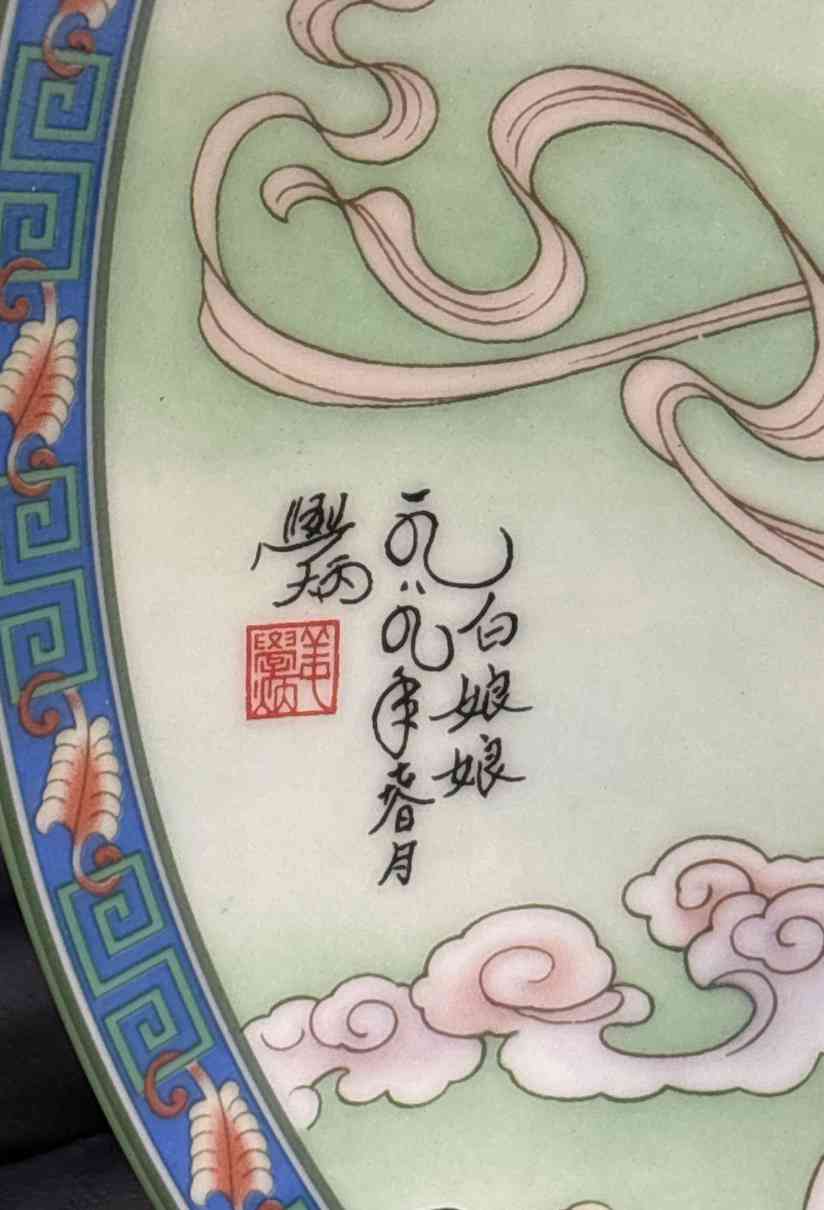 白娘娘
一九八九年春月
學炳